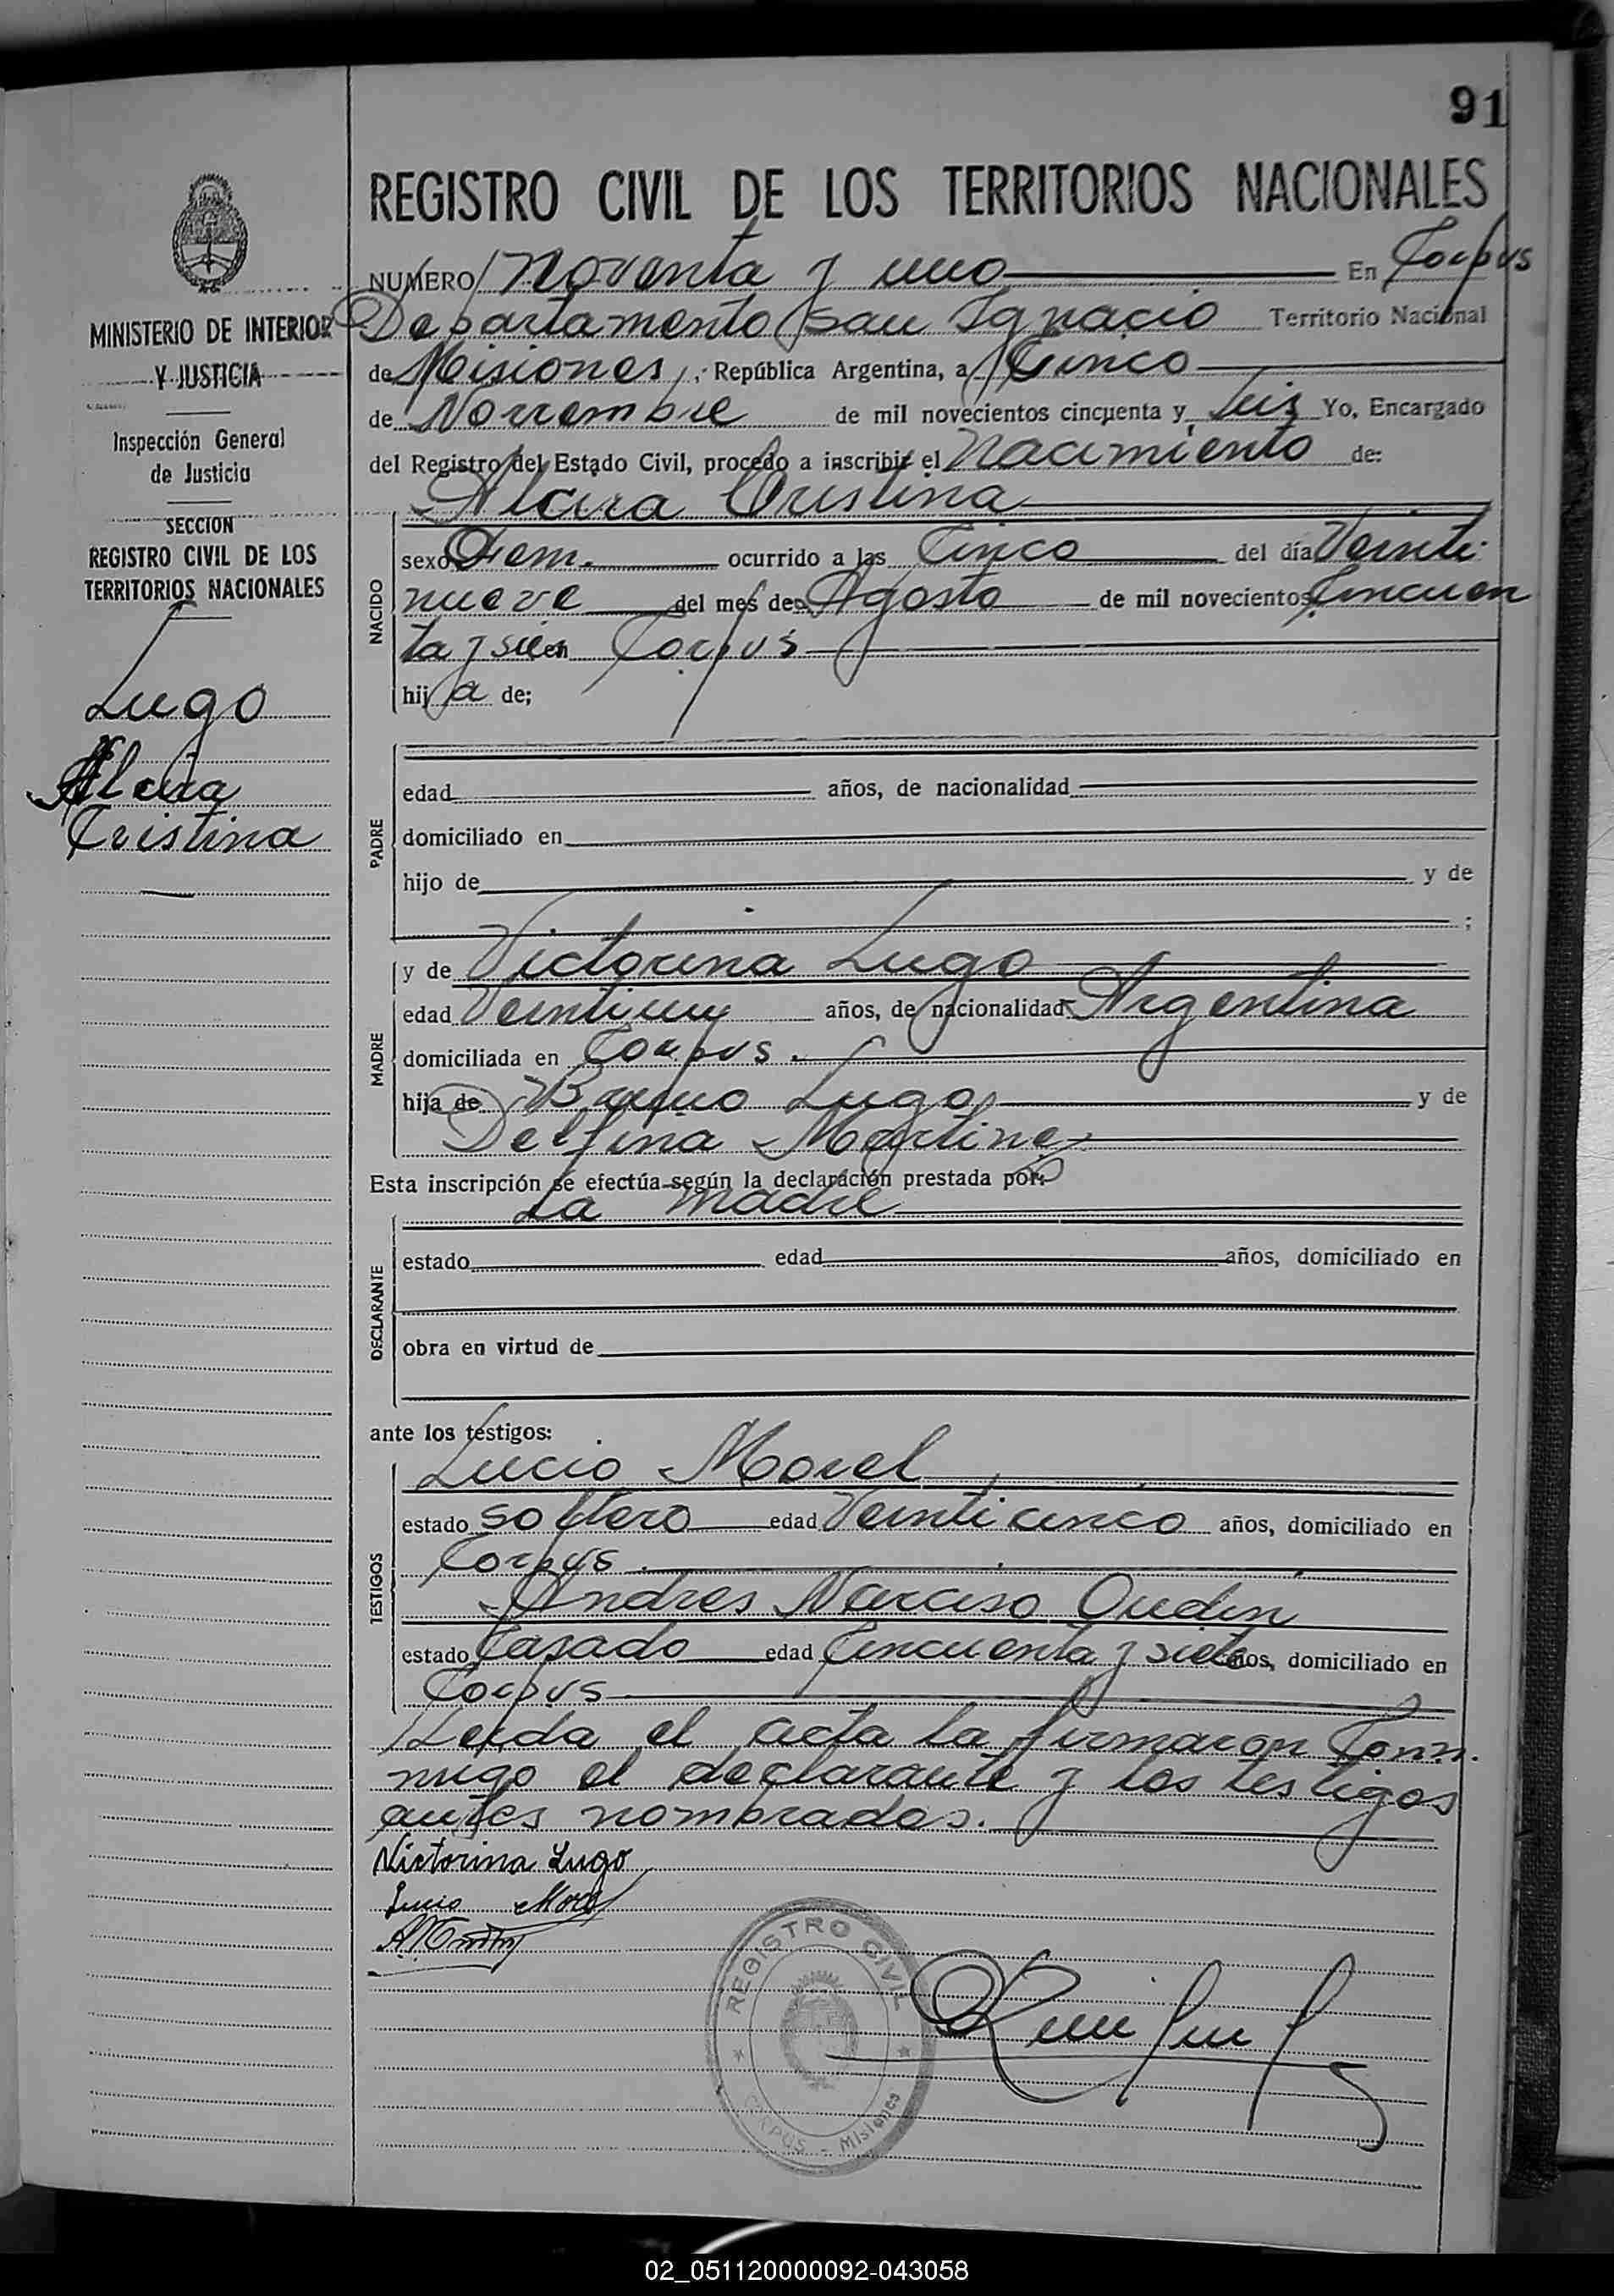 91
REGISTRO CIVIL DE LOS TERRITORIOS NACIONALES
NUMERO Noventa y uno En Corpus
Departamento San Ignacio Territorio Nacional
de Misiones, República Argentina, a Cinco
de Noviembre de mil novecientos cincuenta y seis Yo, Encargado
del Registro del Estado Civil, procedo a inscribir el Nacimiento de:
Cristina
NACIDO
sexo Fem. ocurrido a las Cinco del día Veinti
nueve del mes de Agosto de mil novecientos Cincuen
ta y seis en Corpus
hija de;
PADRE
edad años, de nacionalidad
domiciliado en
hijo de y de
;
MADRE
y de Victorina Lugo
edad años, de nacionalidad Argentina
domiciliada en Corpus.
hija de Lugo y de
Delfina Martinez
Esta inscripción se efectúa según la declaración prestada por:
La madre
DECLARANTE
estado edad años, domiciliado en
obra en virtud de
ante los testigos:
TESTIGOS
Lucio Morel
estado soltero edad Veinticinco años, domiciliado en
Corpus.
Andres Narciso Oudin
estado Casado edad Cincuenta y siete años, domiciliado en
Corpus
Leida el acta la firmaron Conm
migo el declarante y los testigos
antes nombrados.
Victorina Lugo
Lucio Morel
REGISTRO CIVIL
CORPUS - Misiones
MINISTERIO DE INTERIOR
Y JUSTICIA
Inspección General
de Justicia
SECCION
REGISTRO CIVIL DE LOS
TERRITORIOS NACIONALES
Lugo
Cristina
02_051120000092-043058